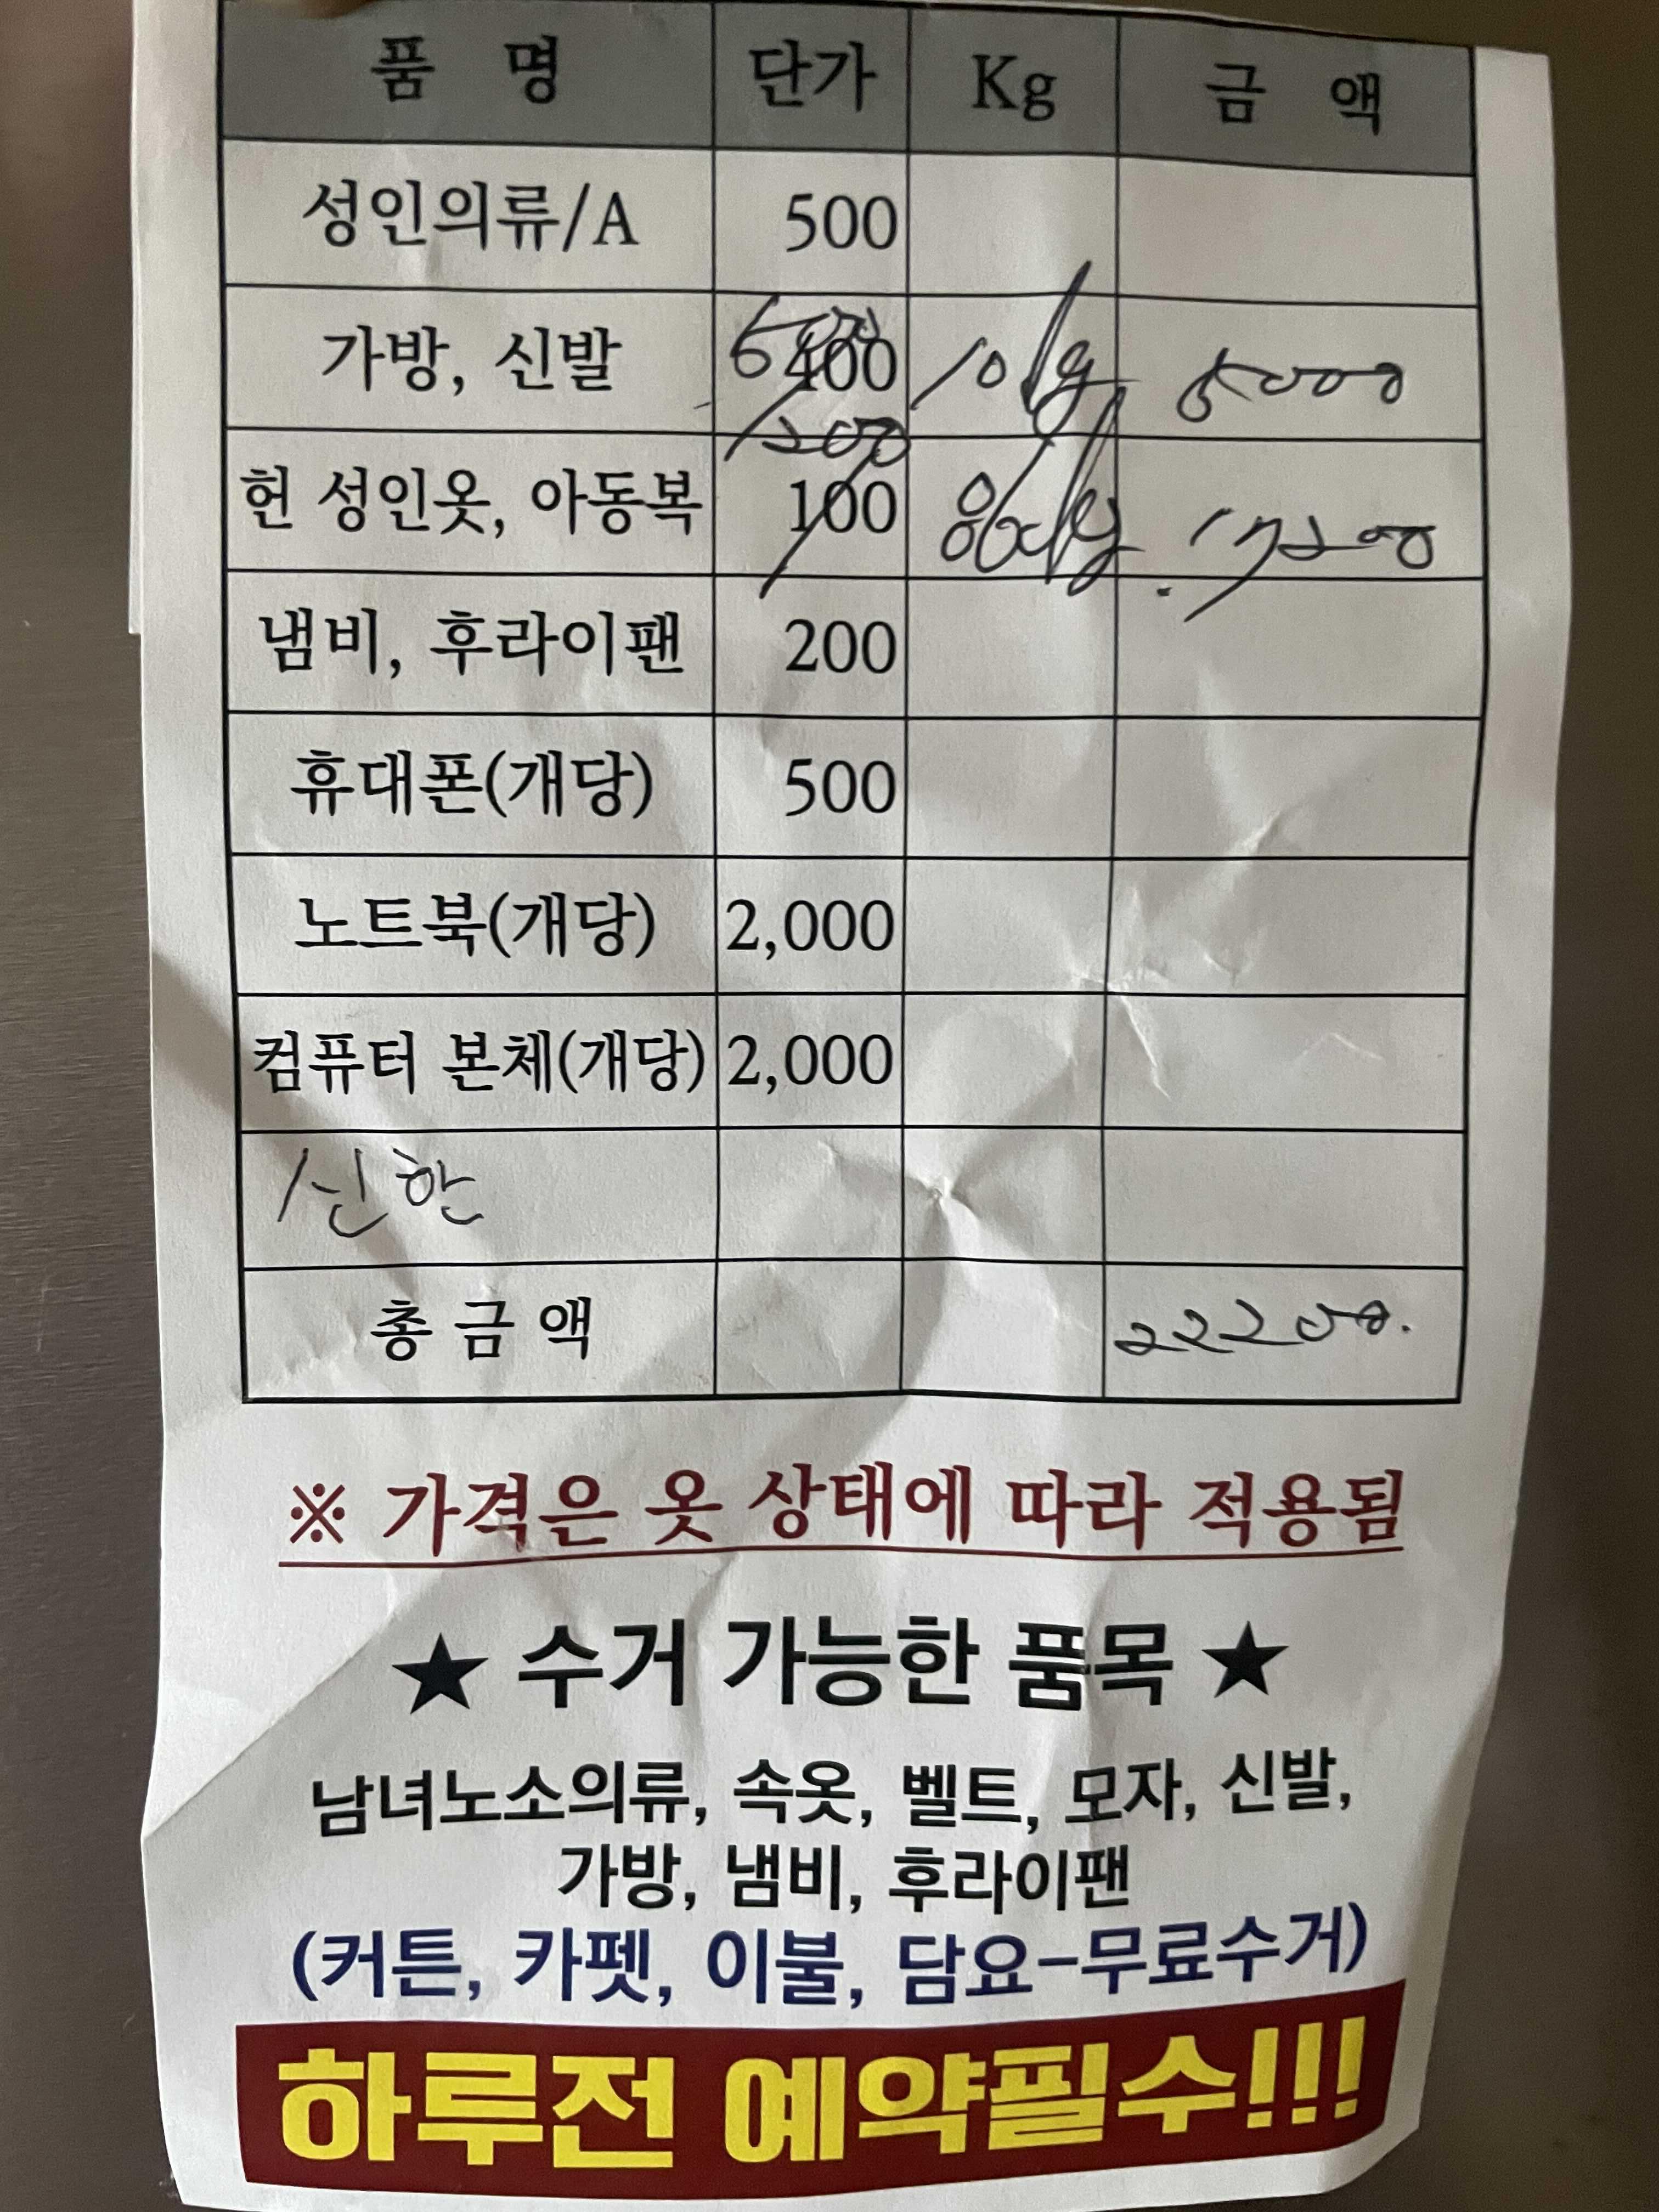 품 명 단가 Kg 금 액
성인의류/A 500
가방, 신발 500 400 10kg 5000
헌 성인옷, 아동복 200 100 86kg 17200
냄비, 후라이팬 200
휴대폰(개당) 500
노트북(개당) 2,000
컴퓨터 본체(개당) 2,000
신한
총 금 액 22200.
※ 가격은 옷 상태에 따라 적용됨
★ 수거 가능한 품목 ★
남녀노소의류, 속옷, 벨트, 모자, 신발,
가방, 냄비, 후라이팬
(커튼, 카펫, 이불, 담요-무료수거)
하루전 예약필수!!!